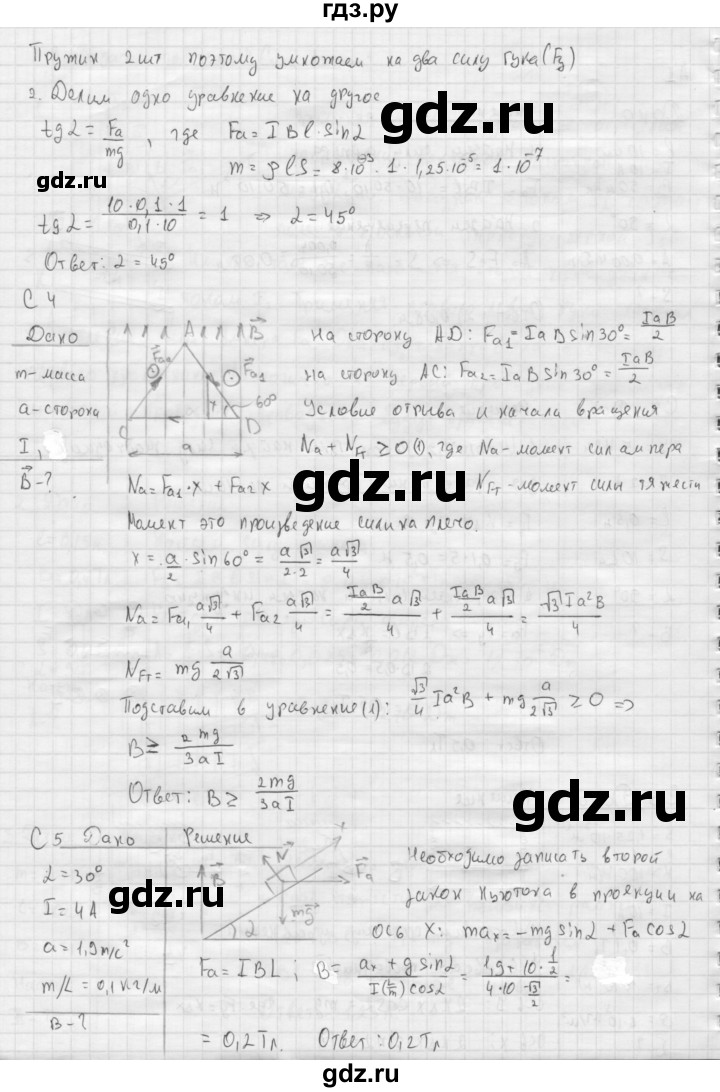 гдз.ру
Пружин 2 шт поэтому умножаем на два силу Гука (F₃)
2. Делим одно уравнение на другое
tg α = Fa/mg, где Fa = I B l · sin α
m = ρ l S = 8·10⁻³ · 1 · 1,25·10⁻⁵ = 1·10⁻⁷
tg α = (10·0,1·1)/(0,1·10) = 1 ⇒ α = 45°
Ответ: α = 45°
С 4
Дано
m - масса
a - сторона
I,
B⃗ - ?
A B⃗
Fa₂ Fa₁
60°
x
C D
a
На сторону AD: Fa₁ = I a B sin 30° = IaB/2
На сторону AC: Fa₂ = I a B sin 30° = IaB/2
Условие отрыва и начала вращения
Na + N_Fт ≥ 0 (1), где Na - момент сил ампера
Na = Fa₁·x + Fa₂ x
N_Fт - момент силы тяжести
Момент это произведение силы на плечо.
x = a/2 · sin 60° = a√3/2·2 = a√3/4
Na = Fa₁ a√3/4 + Fa₂ a√3/4 = (IaB/2 a√3)/4 + (IaB/2 a√3)/4 = √3 I a² B/4
N_Fт = mg a/2√3
Подставим в уравнение (1): √3/4 I a² B + mg a/2√3 ≥ 0 ⇒
B ≥ 2mg/3aI
Ответ: B ≥ 2mg/3aI
С 5 Дано
Решение
α = 30°
I = 4 А
a = 1,9 м/с²
m/L = 0,1 кг/м
B - ?
B⃗ N⃗ x F⃗a
mg⃗
α
Необходимо записать второй
закон Ньютона в проекции на
ось X: maₓ = -mg sin α + Fa cos α
Fa = I B L ; B = (aₓ + g sin α)/(I(L/m) cos α) = (1,9 + 10·1/2)/(4·10·√3/2) =
= 0,2 Тл. Ответ: 0,2 Тл.
gdz.ru
gdz.ru
gdz.ru
gdz.ru
gdz.ru
gdz.ru
gdz.ru
gdz.ru
gdz.ru
gdz.ru